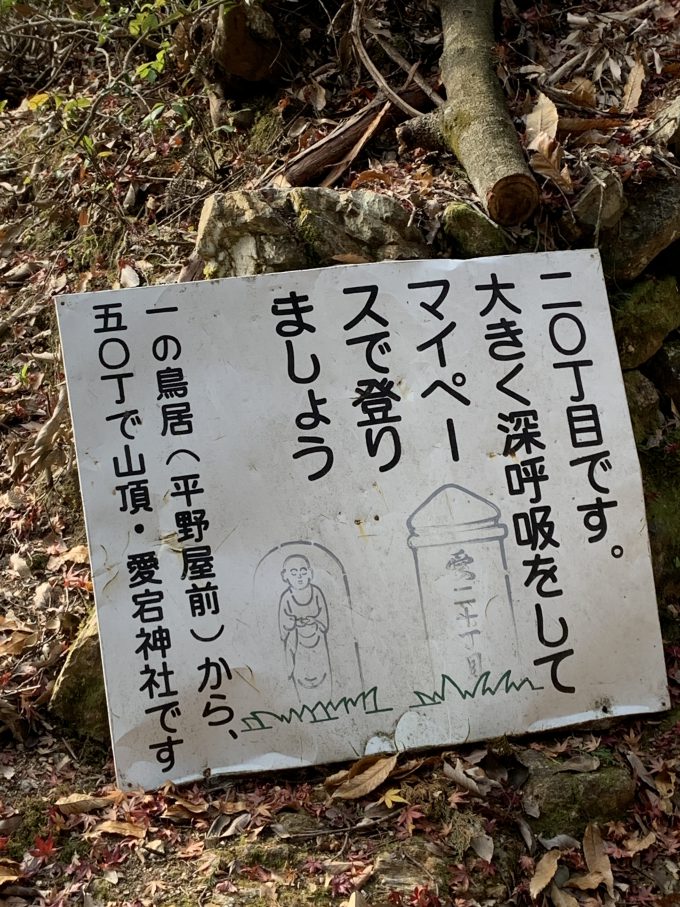 二〇丁目です。
大きく深呼吸をして
マイペー
スで登り
ましょう
一の鳥居(平野屋前)から、
五〇丁で山頂・愛宕神社です
愛
二十丁目